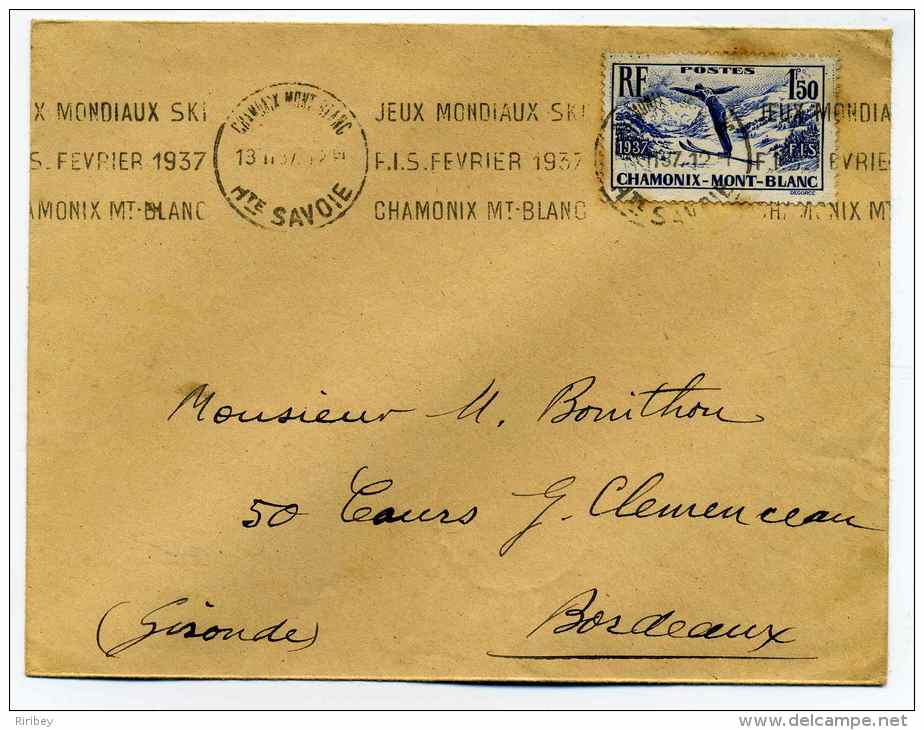 X MONDIAUX SKI
.S. FEVRIER 1937
AMONIX MT-BLANC
CHAMONIX MONT-BLANC
13 II 37
HTE SAVOIE
JEUX MONDIAUX SKI
F.I.S. FEVRIER 1937
CHAMONIX MT-BLANC
RF POSTES 1F50
1937 F.I.S.
CHAMONIX-MONT-BLANC
DECORZE
II 37-12
HTE SAVOIE
JEUX MONDIA
F. EVRIER
CHAMONIX MT
Monsieur M. Bonithon
50 Cours G. Clemenceau
(Gironde) Bordeaux
Riribey
www.delcampe.net